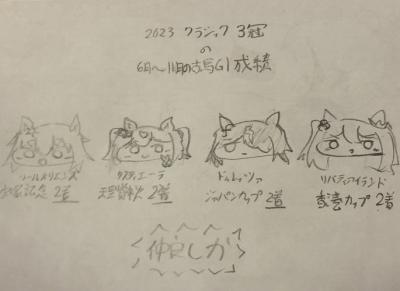 2023 クラシック 3冠
の
6月〜11月の古馬G1成績
ソールオリエンス タスティエーラ ドゥレッツァ リバティアイランド
宝塚記念 2着 天皇賞秋 2着 ジャパンカップ 2着 香港カップ 2着
仲良しか